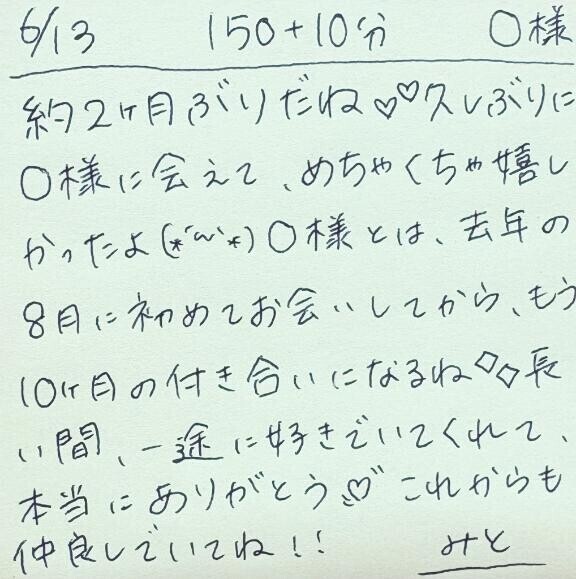 6/13 150+10分 〇様
約2ヶ月ぶりだね♡♡久しぶりに
〇様に会えて、めちゃくちゃ嬉し
かったよ(*´ω`*)〇様とは、去年の
8月に初めてお会いしてから、もう
10ヶ月の付き合いになるね◇◇長
い間、一途に好きでいてくれて、
本当にありがとう♡これからも
仲良しでいてね!!
みと